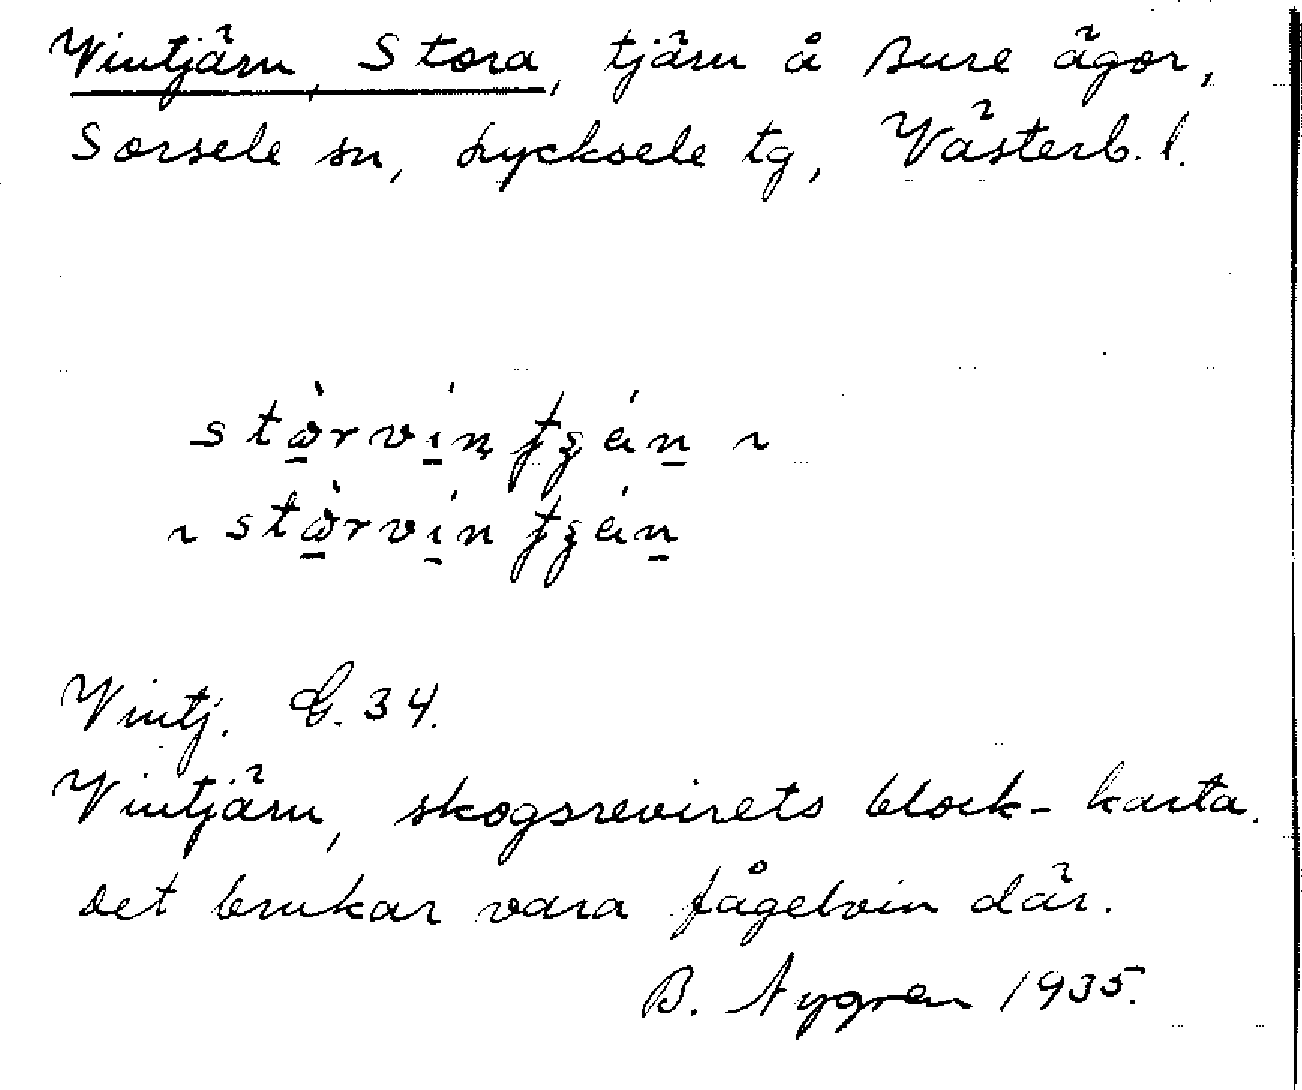 Vintjärn, Stora, tjärn å Bure ägor,
Sorsele sn, Lycksele tg, Västerb. l.
Vintj. G. 34.
Vintjärn, skogsrevirets block-karta.
Det brukar vara fågelvin där.
B. Nygren 1935.